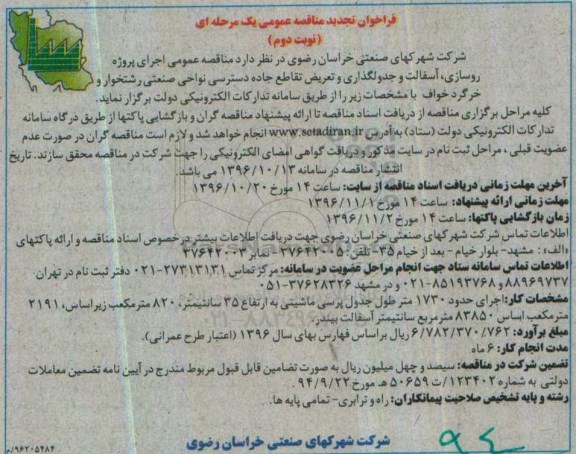 فراخوان تجدید مناقصه عمومی یک مرحله ای
(نوبت دوم)
شرکت شهرکهای صنعتی خراسان رضوی در نظر دارد مناقصه عمومی اجرای پروژه
روسازی، آسفالت و جدولگذاری و تعریض تقاطع جاده دسترسی نواحی صنعتی رشتخوار و
خرگرد خواف با مشخصات زیر را از طریق سامانه تدارکات الکترونیکی دولت برگزار نماید.
کلیه مراحل برگزاری مناقصه از دریافت اسناد مناقصه تا ارائه پیشنهاد مناقصه گران و بازگشایی پاکتها از طریق درگاه سامانه
تدارکات الکترونیکی دولت (ستاد) به آدرس www.setadiran.ir انجام خواهد شد و لازم است مناقصه گران در صورت عدم
عضویت قبلی، مراحل ثبت نام در سایت مذکور و دریافت گواهی امضای الکترونیکی را جهت شرکت در مناقصه محقق سازند. تاریخ
انتشار مناقصه در سامانه ۱۳۹۶/۱۰/۱۳ می باشد.
آخرین مهلت زمانی دریافت اسناد مناقصه از سایت: ساعت ۱۴ مورخ ۱۳۹۶/۱۰/۲۰
مهلت زمانی ارائه پیشنهاد: ساعت ۱۴ مورخ ۱۳۹۶/۱۱/۱
زمان بازگشایی پاکتها: ساعت ۱۴ مورخ ۱۳۹۶/۱۱/۲
اطلاعات تماس شرکت شهرکهای صنعتی خراسان رضوی جهت دریافت اطلاعات بیشتر در خصوص اسناد مناقصه و ارائه پاکتهای
«الف»: مشهد- بلوار خیام - بعد از خیام ۳۵- تلفن: ۳۷۶۴۲۰۰۵ - نمابر ۳۷۶۴۲۰۰۳
اطلاعات تماس سامانه ستاد جهت انجام مراحل عضویت در سامانه: مرکز تماس ۲۷۳۱۳۱۳۱-۰۲۱ دفتر ثبت نام در تهران
۸۸۹۶۹۷۳۷ و ۸۵۱۹۳۷۶۸-۰۲۱ و در مشهد ۳۷۶۲۸۳۲۶-۰۵۱
مشخصات کار: اجرای حدود ۱۷۳۰ متر طول جدول پرسی ماشینی به ارتفاع ۳۵ سانتیمتر، ۸۲۰ مترمکعب زیراساس، ۲۱۹۱
مترمکعب اساس ۸۳۸۵۰ مترمربع سانتیمتر آسفالت بیندر.
مبلغ برآورد: ۶/۷۸۲/۳۷۰/۷۶۲ ریال براساس فهارس بهای سال ۱۳۹۶ (اعتبار طرح عمرانی).
مدت انجام کار: ۶ ماه
تضمین شرکت در مناقصه: سیصد و چهل میلیون ریال به صورت تضامین قابل قبول مربوط مندرج در آیین نامه تضمین معاملات
دولتی به شماره ۱۲۳۴۰۲/ت ۵۰۶۵۹ هـ مورخ ۹۴/۹/۲۲.
رشته و پایه تشخیص صلاحیت پیمانکاران: راه و ترابری- تمامی پایه ها.
شرکت شهرکهای صنعتی خراسان رضوی
۹۶۲۰۵۴۸۴/م